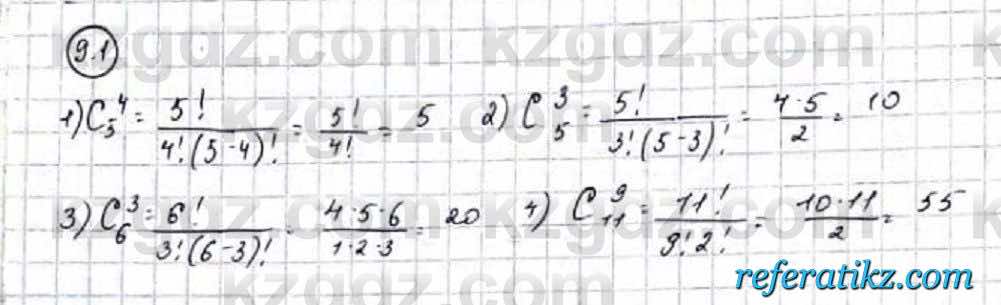 9.1
1) C₅⁴ = 5! / 4!(5-4)! = 5! / 4! = 5 2) C₅³ = 5! / 3!(5-3)! = 4·5 / 2 = 10
3) C₆³ = 6! / 3!(6-3)! = 4·5·6 / 1·2·3 = 20 4) C₁₁⁹ = 11! / 9!2! = 10·11 / 2 = 55
kzgdz.com kzgdz.com
referatikz.com